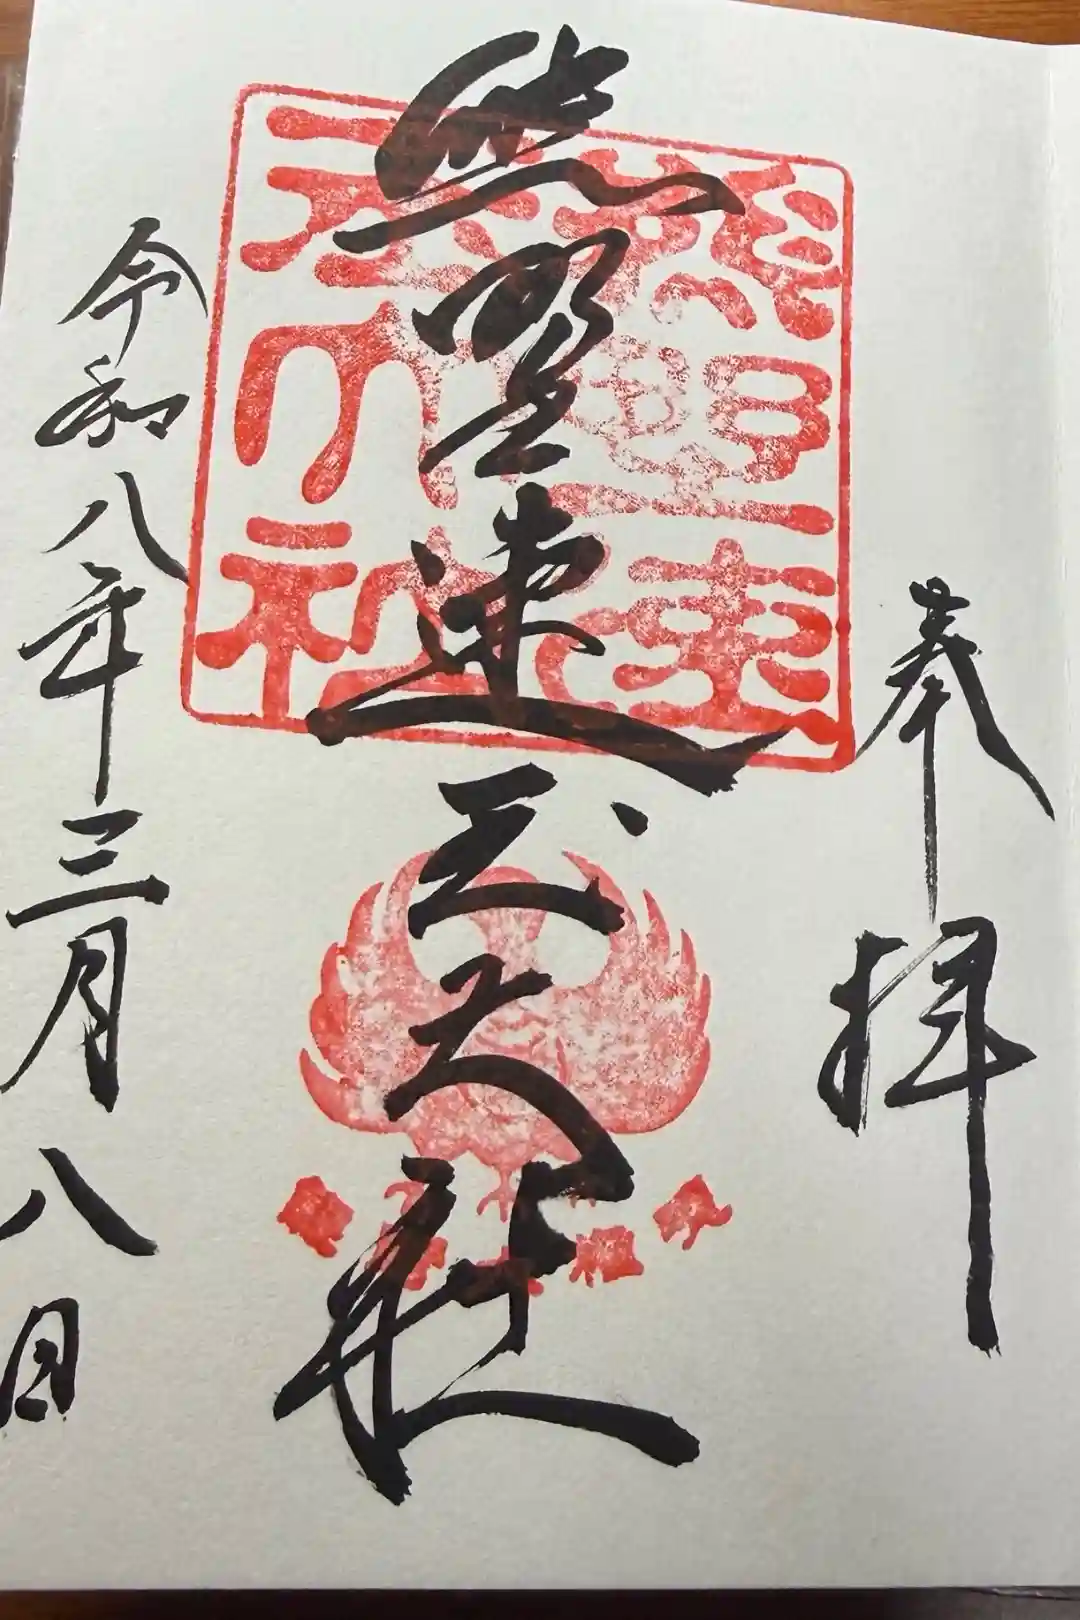 奉拝
熊野速玉大社
令和八年三月八日
熊野速
玉大社